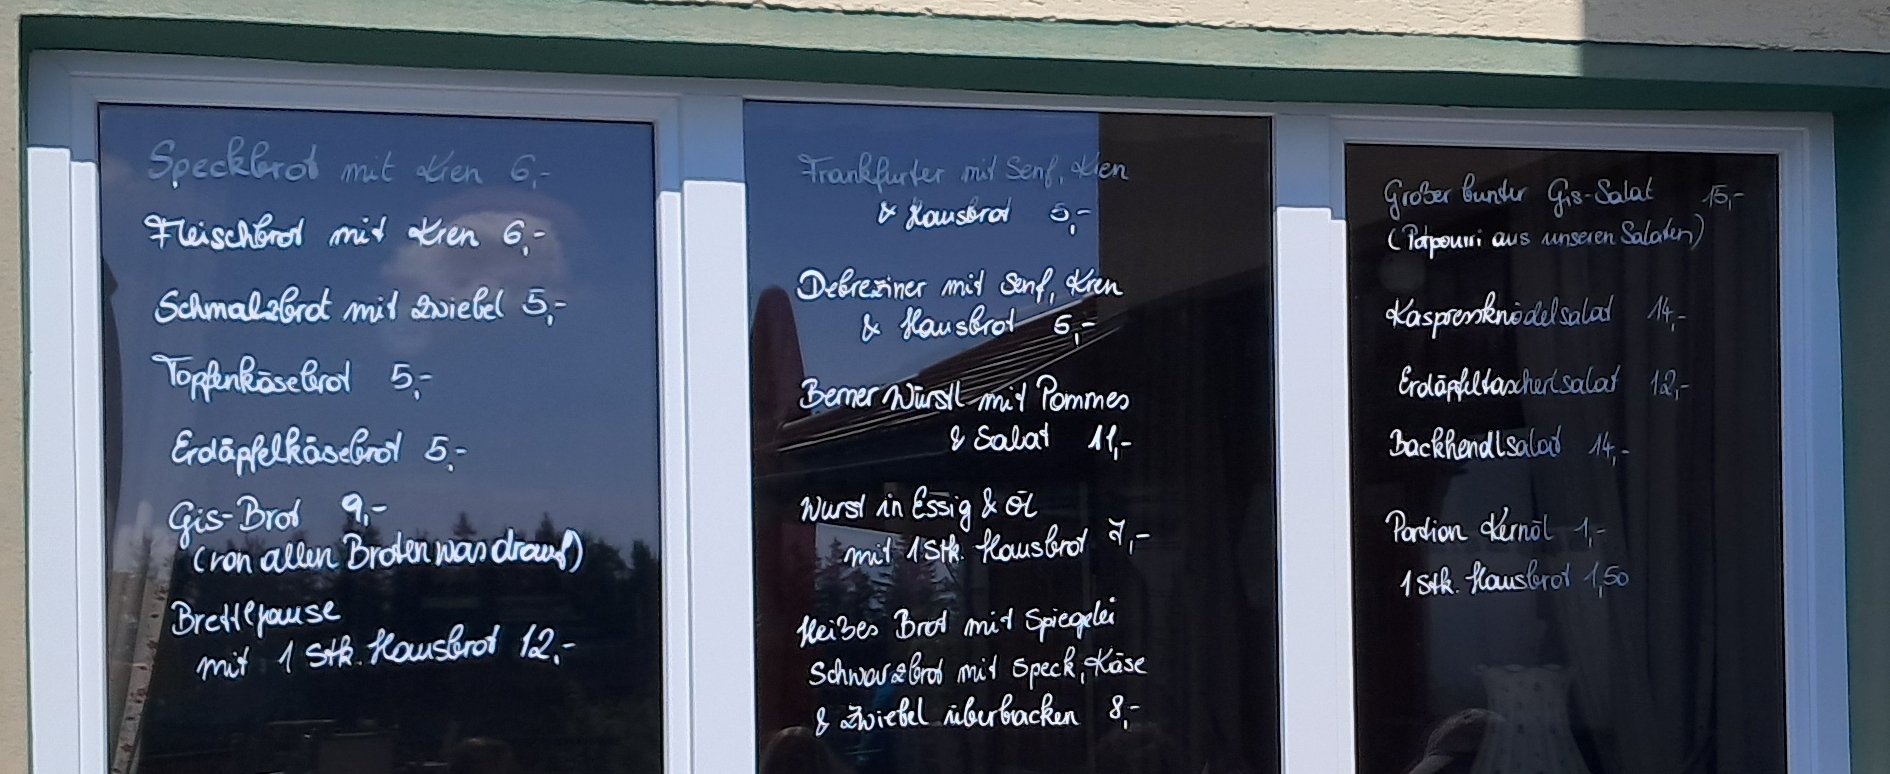 Speckbrot mit Kren 6,-
Fleischbrot mit Kren 6,-
Schmalzbrot mit Zwiebel 5,-
Topfenkäsebrot 5,-
Erdäpfelkäsebrot 5,-
Gis-Brot 9,-
(von allen Broten was drauf)
Brettljause
mit 1 Stk. Hausbrot 12,-
Frankfurter mit Senf, Kren
& Hausbrot 5,-
Debreziner mit Senf, Kren
& Hausbrot 6,-
Berner Würstl mit Pommes
& Salat 11,-
Wurst in Essig & Öl
mit 1 Stk. Hausbrot 7,-
Heißes Brot mit Spiegelei
Schwarzbrot mit Speck, Käse
& Zwiebel überbacken 8,-
Großer bunter Gis-Salat 15,-
(Potpourri aus unseren Salaten)
Kaspressknödelsalat 14,-
Erdäpfeltascherlsalat 12,-
Backhendlsalat 14,-
Portion Kernöl 1,-
1 Stk. Hausbrot 1,50